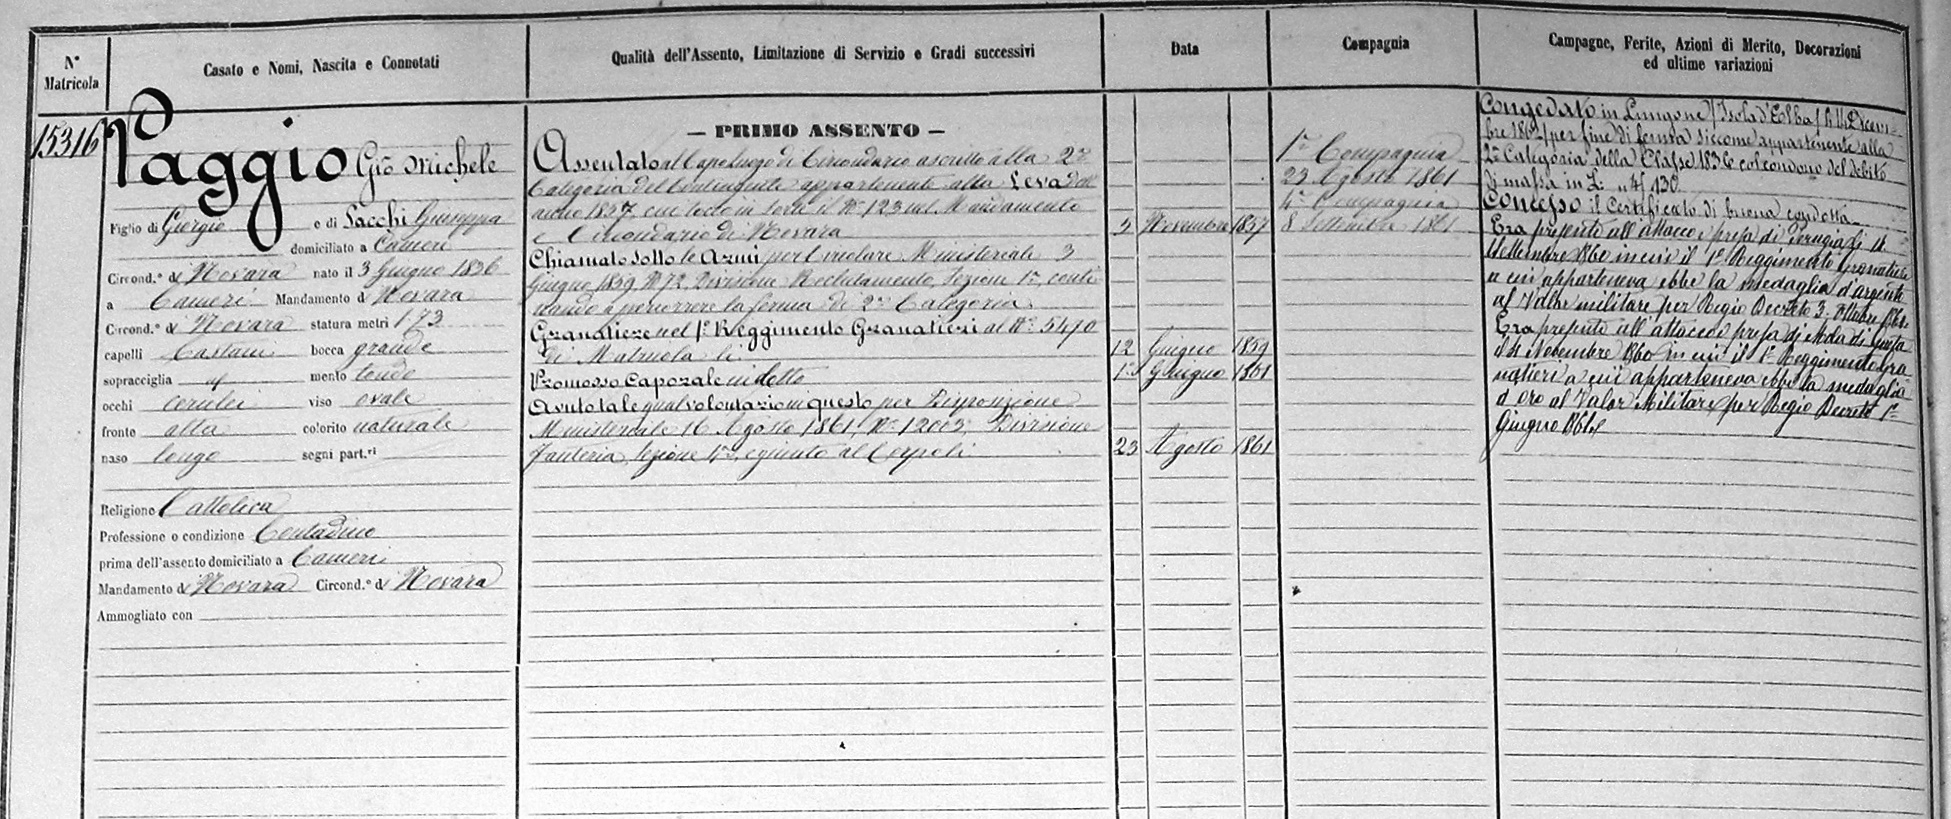 N° Matricola
Casato e Nomi, Nascita e Connotati
Qualità dell'Assento, Limitazione di Servizio e Gradi successivi
Data
Compagnia
Campagne, Ferite, Azioni di Merito, Decorazioni
ed ultime variazioni
15316
Paggio Gio Michele
Figlio di Giorgio e di Sacchi Giuseppa
domiciliato a Cameri
Circond.° di Novara nato il 3 Giugno 1836
a Cameri Mandamento di Novara
Circond.° di Novara statura metri 1,73
capelli Castani bocca grande
sopracciglia id mento tondo
occhi cerulei viso ovale
fronte alta colorito naturale
naso longo segni part.ri
Religione Cattolica
Professione o condizione Contadino
prima dell'assento domiciliato a Cameri
Mandamento di Novara Circond.° di Novara
Ammogliato con
— PRIMO ASSENTO —
Assentato al Capoluogo di Circondario ascritto alla 2a
Categoria del Contingente appartenente alla Leva dell'
anno 1857, cui toccò in sorte il N° 123 nel Mandamento
e Circondario di Novara
5 Novembre 1857
Chiamato sotto le Armi per Circolare Ministeriale 3
Giugno 1859 N° 72, Divisione Reclutamento, Sezione 1a, conti
nuando a percorrere la ferma di 2a Categoria
Granatiere nel 1° Reggimento Granatieri al N° 5470
di Matricola li
12 Giugno 1859
Promosso Caporale in detto
1° Giugno 1861
Avuto tale qual volontario in questo per Disposizione
Ministeriale 16 Agosto 1861, N° 12003 Divisione
Fanteria, Sezione 1a, e giunto al Corpo li
23 Agosto 1861
1a Compagnia
23 Agosto 1861
4a Compagnia
8 Settembre 1861
Congedato in Lungone (Isola d'Elba) li 11 Dicem-
bre 1862 per fine di ferma siccome appartenente alla
2a Categoria della Classe 1836 col condono del debito
di massa in L.
Concesso il Certificato di buona condotta
Era presente all'attacco e presa di Perugia li 14
Settembre 1860 in cui il 1° Reggimento Granatieri
a cui apparteneva ebbe la medaglia d'argento
al Valor militare per Regio Decreto 3 Ottobre 1860
Era presente all'attacco e presa di Mola di Gaeta
il 4 Novembre 1860 in cui il 1° Reggimento Gra
natieri a cui apparteneva ebbe la medaglia
d'oro al Valor Militare per Regio Decreto 1°
Giugno 1861